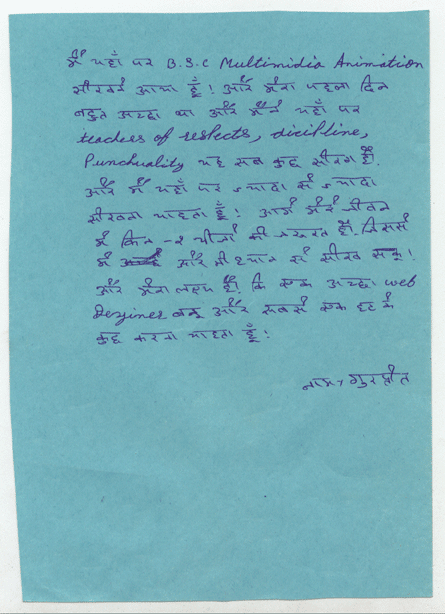 मैं यहाँ पर B.S.C Multimidia Animation
सीखने आया हूँ! और मेरा पहला दिन
बहुत अच्छा था और मैंने यहाँ पर
teachers of respects, dicipline,
Punchuality यह सब कुछ सीखा है।
और मैं यहाँ पर ज्यादा से ज्यादा
सीखना चाहता हूँ! आगे मेरे जीवन
में किन-२ चीजों की जरूरत है। जिससे
मैं और भी ध्यान से सीख सकु!
और मेरा लक्ष्य है। कि एक अच्छा web
Desziner बनू और सबसे एक हट के
कुछ करना चाहता हूँ!
नाम > गुरप्रीत